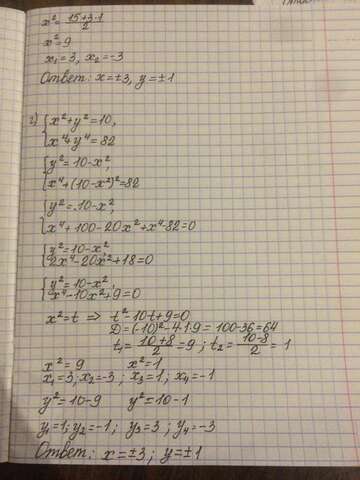 x² = (15+3·1)/2
x² = 9
x₁ = 3, x₂ = -3
Ответ: x = ±3, y = ±1
г) { x² + y² = 10,
x⁴ + y⁴ = 82
{ y² = 10 - x²,
x⁴ + (10 - x²)² = 82
{ y² = 10 - x²,
x⁴ + 100 - 20x² + x⁴ - 82 = 0
{ y² = 10 - x²
2x⁴ - 20x² + 18 = 0
{ y² = 10 - x²,
x⁴ - 10x² + 9 = 0
x² = t ⇒ t² - 10t + 9 = 0
D = (-10)² - 4·1·9 = 100 - 36 = 64
t₁ = (10+8)/2 = 9; t₂ = (10-8)/2 = 1
x² = 9 x² = 1
x₁ = 3; x₂ = -3; x₃ = 1; x₄ = -1
y² = 10 - 9 y² = 10 - 1
y₁ = 1; y₂ = -1; y₃ = 3; y₄ = -3
Ответ: x = ±3; y = ±1